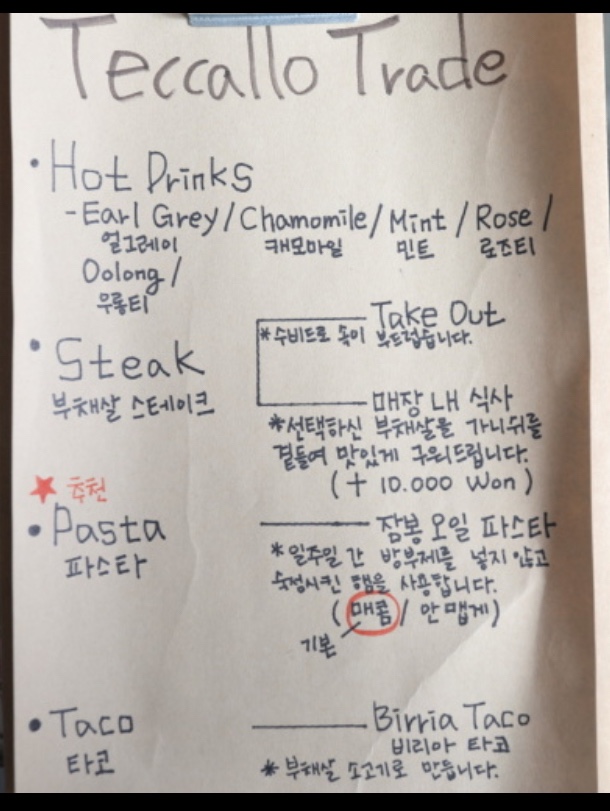 Teccallo Trade
• Hot Drinks
- Earl Grey / Chamomile / Mint / Rose /
얼그레이 캐모마일 민트 로즈티
Oolong /
우롱티
• Steak
부채살 스테이크
Take Out
*수비드로 속이 부드럽습니다.
매장 내 식사
*선택하신 부채살을 가니쉬를
곁들여 맛있게 구워드립니다.
(+ 10.000 Won)
★ 추천
• Pasta
파스타
잠봉 오일 파스타
*일주일 간 방부제를 넣지 않고
숙성시킨 햄을 사용합니다.
(매콤 / 안 맵게)
기본
• Taco
타코
Birria Taco
비리아 타코
* 부채살 소고기로 만듭니다.